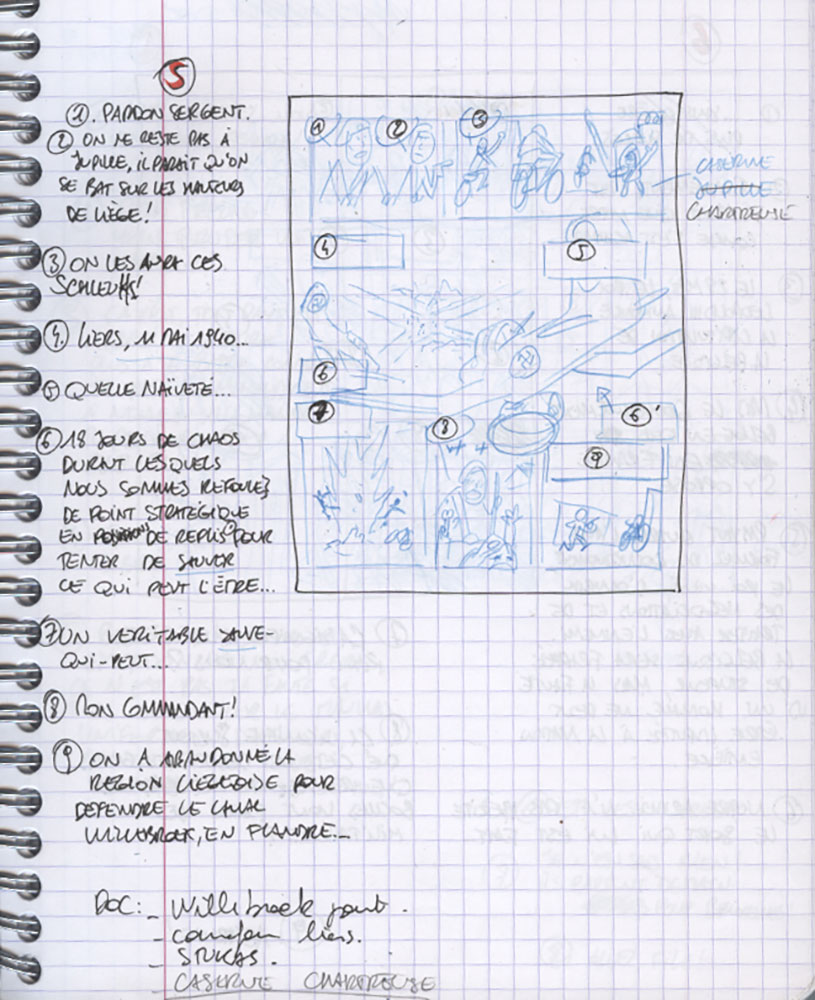 5
1. PARDON SERGENT.
2 ON NE RESTE PAS À
JUPILLE, IL PARAIT QU'ON
SE BAT SUR LES HAUTEURS
DE LIÈGE!
3 ON LES AURA CES
SCHLEUHS!
4. LIERS, 11 MAI 1940...
5 QUELLE NAÏVETÉ...
6 18 JOURS DE CHAOS
DURANT LESQUELS
NOUS SOMMES REFOULÉS
DE POINT STRATÉGIQUE
EN POSITION DE REPLIS POUR
TENTER DE SAUVER
CE QUI PEUT L'ÊTRE...
7 UN VERITABLE SAUVE-
QUI-PEUT...
8 MON COMMANDANT!
9 ON A ABANDONNÉ LA
REGION LIEGEOISE POUR
DEFENDRE LE CANAL
WILLEBROEK, EN FLANDRE...
DOC: - Willebroek pont.
- liers.
- STUKAS.
- CASERNE CHARTREUSE
1
2
3
CASERNE
JUPILLE
CHARTREUSE
4
5
6
7
8
6'
9